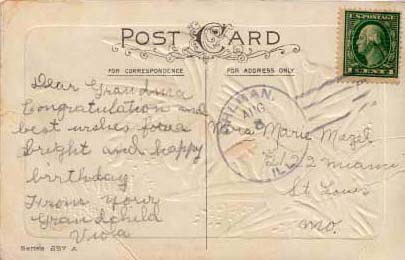 POST CARD
FOR CORRESPONDENCE
FOR ADDRESS ONLY
U.S. POSTAGE
Dear Grandma
Congratulation and
best wishes for a
bright and happy
birthday
From your
Grandchild
Viola
Series 257 A
AUG
ILL.
Mrs Marie Mazel
2122 Miami
St Louis
Mo.